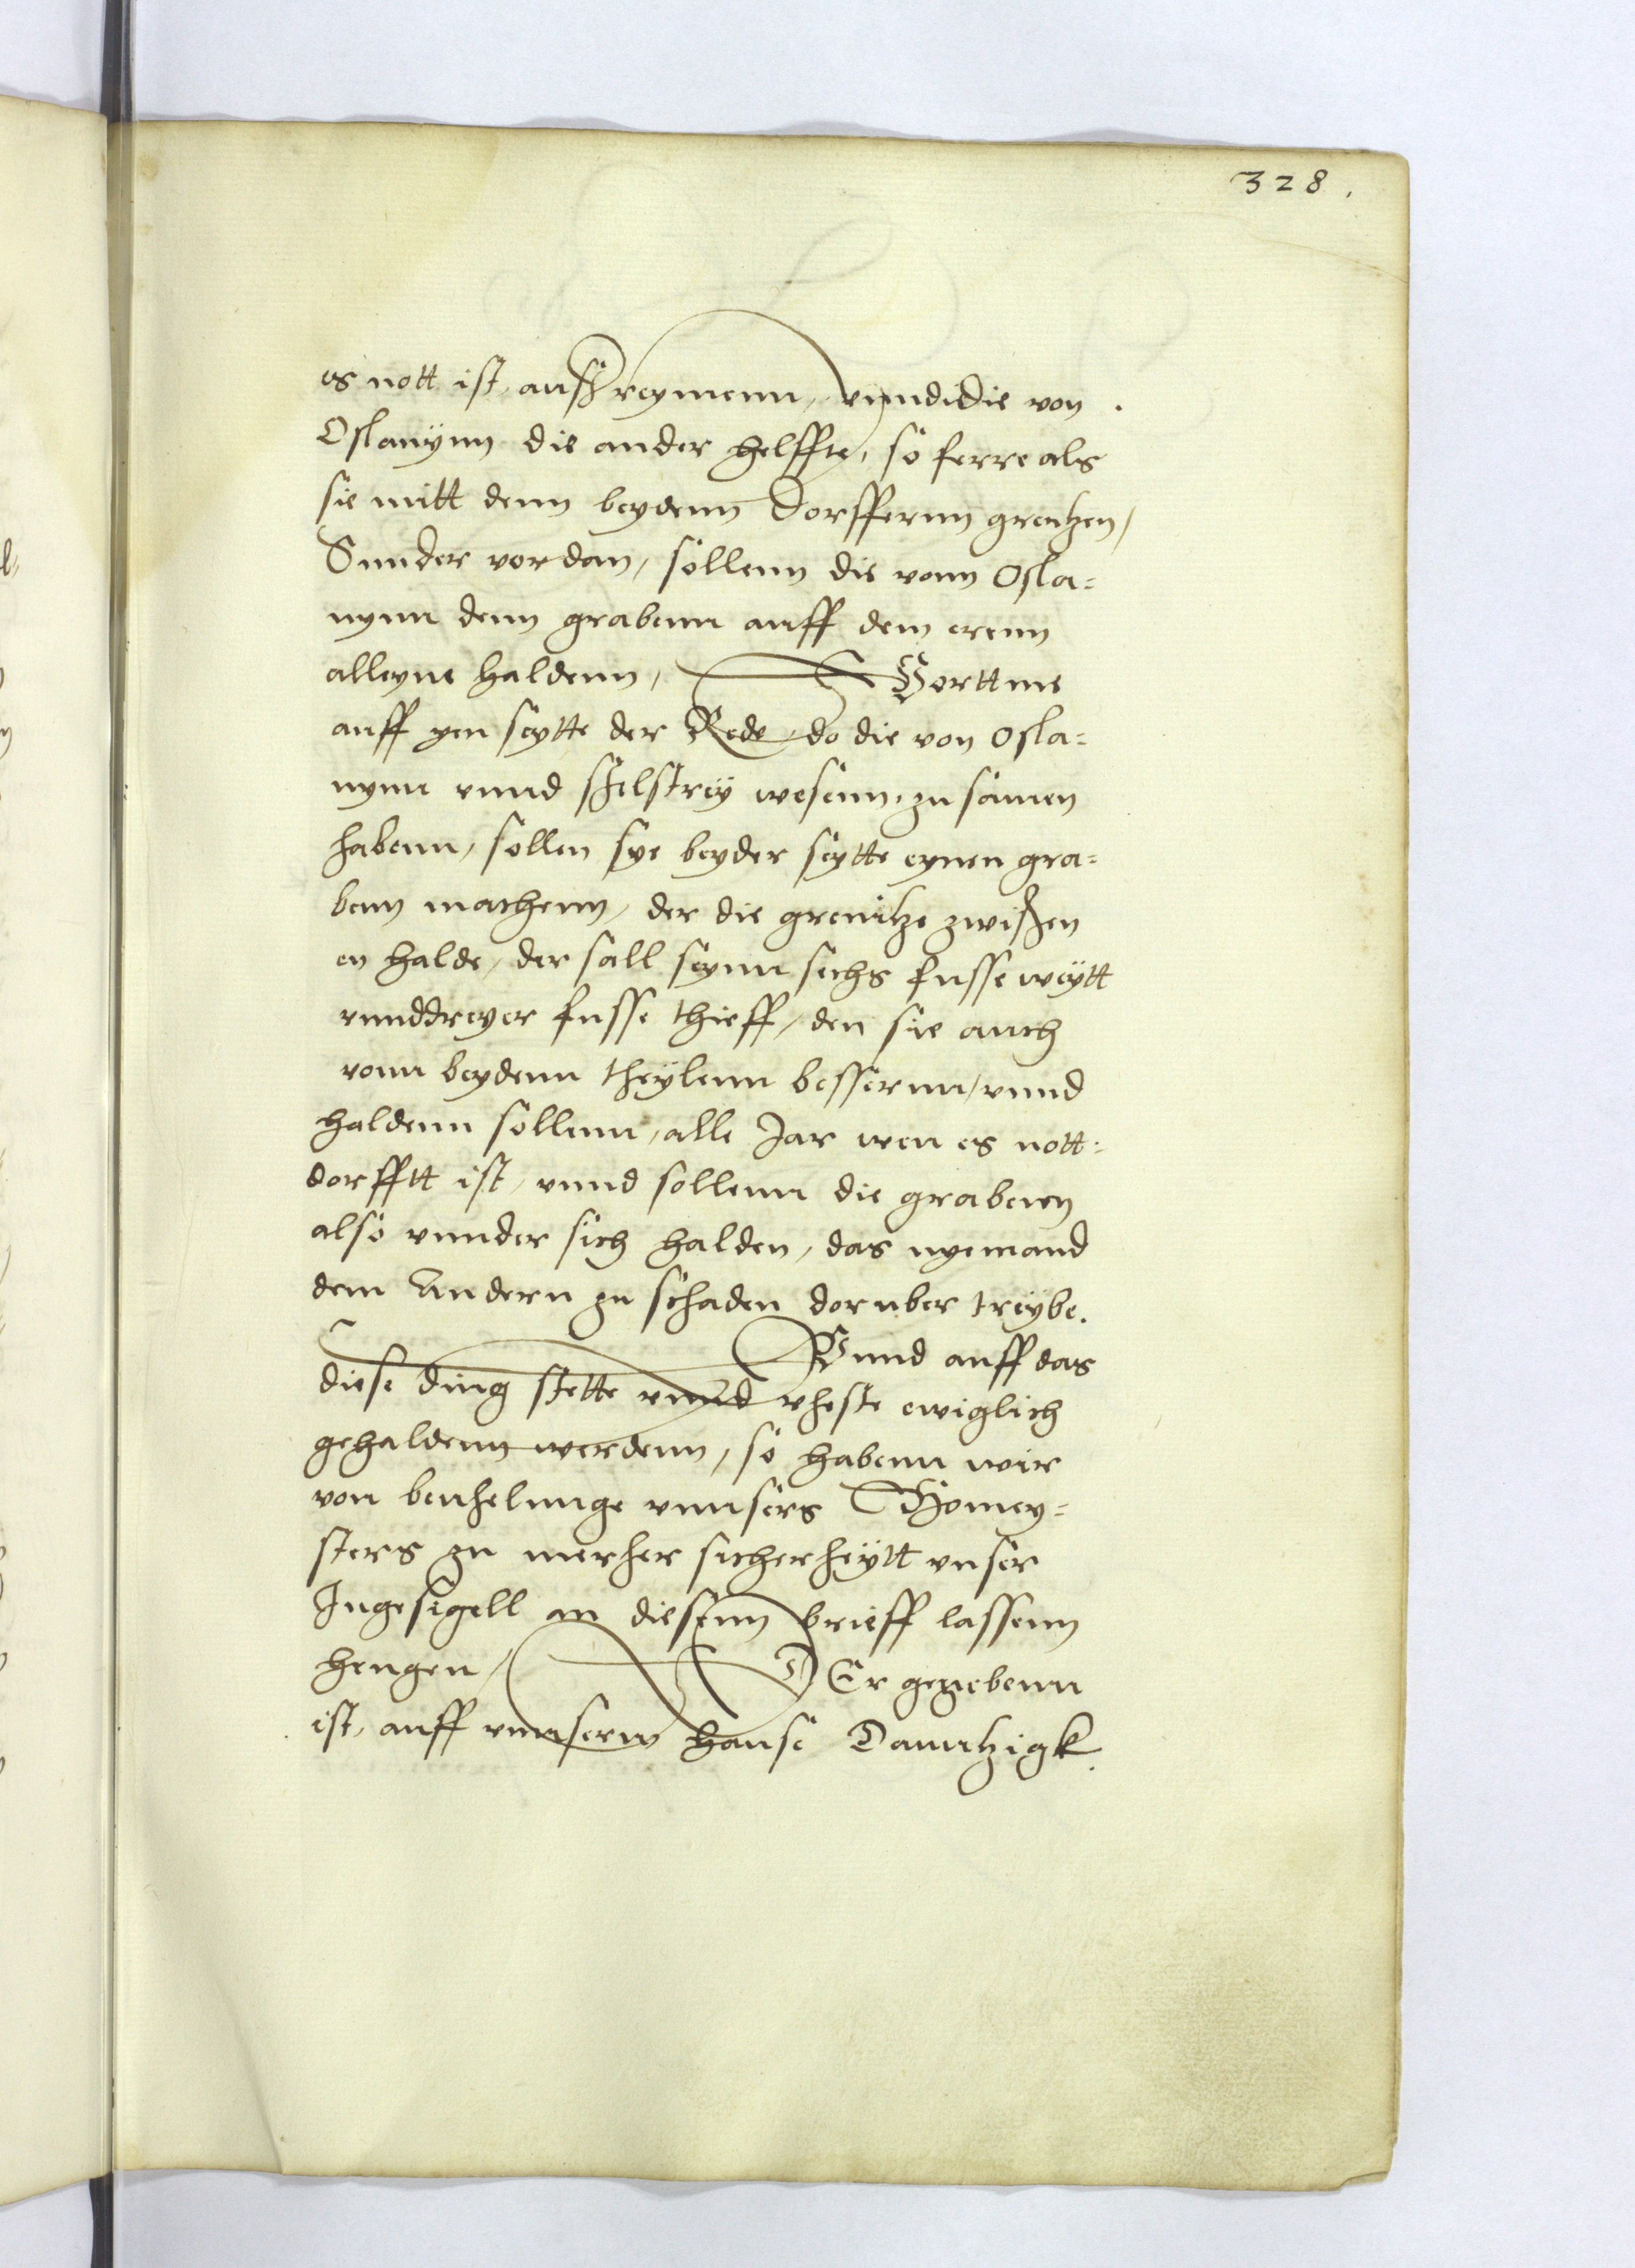 328.
es nott ist, außreymenn, vnndt die von
Oslanÿnn die ander helffte, so ferre als
sie mitt denn beydenn dorffernn grentzen,
Sunder vordan, sollenn die vonn Osla=
nynn denn grabenn auff dem erenn
alleyne haldenn, Vorttme
auff yen seytte der Rede, do die von Osla=
nynn vnnd Schelstrey wesenn, zu samen
habenn, sollen sye beyder seytte eynen gra=
benn machenn, der die grenitze zwischen
en halde, der sall seynn sechs fusse weytt
vnnd dreyer fusse thieff, den sie auch
vonn beydenn theylenn bessernn, vnnd
haldenn sollenn, alle Jar wen es nott=
dorfftt ist, vnnd sollenn die grabenn
also vnnder sich halden, das nyemand
dem Andern zu schaden doruber treybe.
Vnnd auff das
diese ding stette vnnd vheste ewiglich
gehaldenn werdenn, so habenn wir
von beuhelunge vnnsers Homey=
sters zu merher sicherheytt vnser
Ingesigell an diesenn brieff lassenn
hengen, DEr gegebenn
ist, auff vnnserm hause Danntzigk.